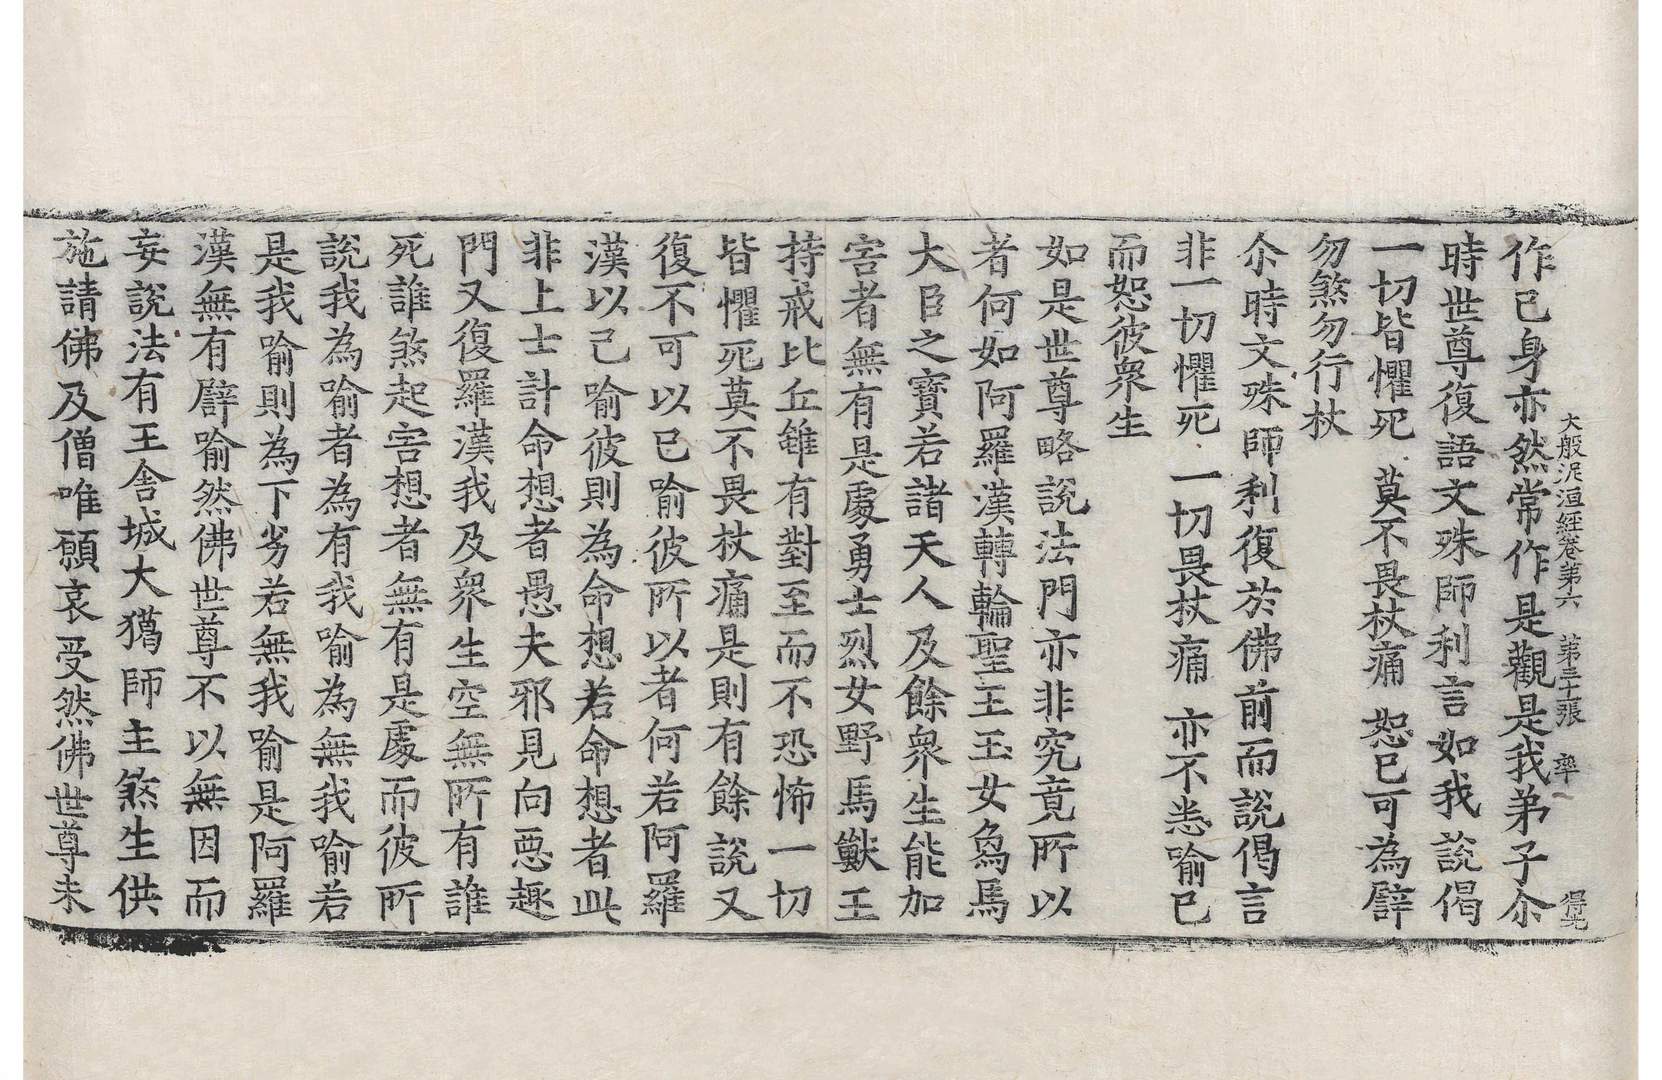 大般泥洹經卷第六　第三十張　率
得九
作己身亦然常作是觀是我弟子尒
時世尊復語文殊師利言如我說偈
一切皆懼死　莫不畏杖痛　恕已可為譬
勿煞勿行杖
尒時文殊師利復於佛前而說偈言
非一切懼死　一切畏杖痛　亦不恙喻已
而恕彼衆生
如是世尊略說法門亦非究竟所以
者何如阿羅漢轉輪聖王玉女象馬
大臣之寶若諸天人及餘衆生能加
害者無有是處勇士烈女野馬獸王
持戒比丘雖有對至而不恐怖一切
皆懼死莫不畏杖痛是則有餘說又
復不可以已喻彼所以者何若阿羅
漢以己喻彼則為命想若命想者此
非上士計命想者愚夫邪見向惡趣
門又復羅漢我及衆生空無所有誰
死誰煞起害想者無有是處而彼所
說我為喻者為有我喻為無我喻若
是我喻則為下劣若無我喻是阿羅
漢無有譬喻然佛世尊不以無因而
妄說法有王舍城大獦師主煞生供
施請佛及僧唯願哀受然佛世尊未